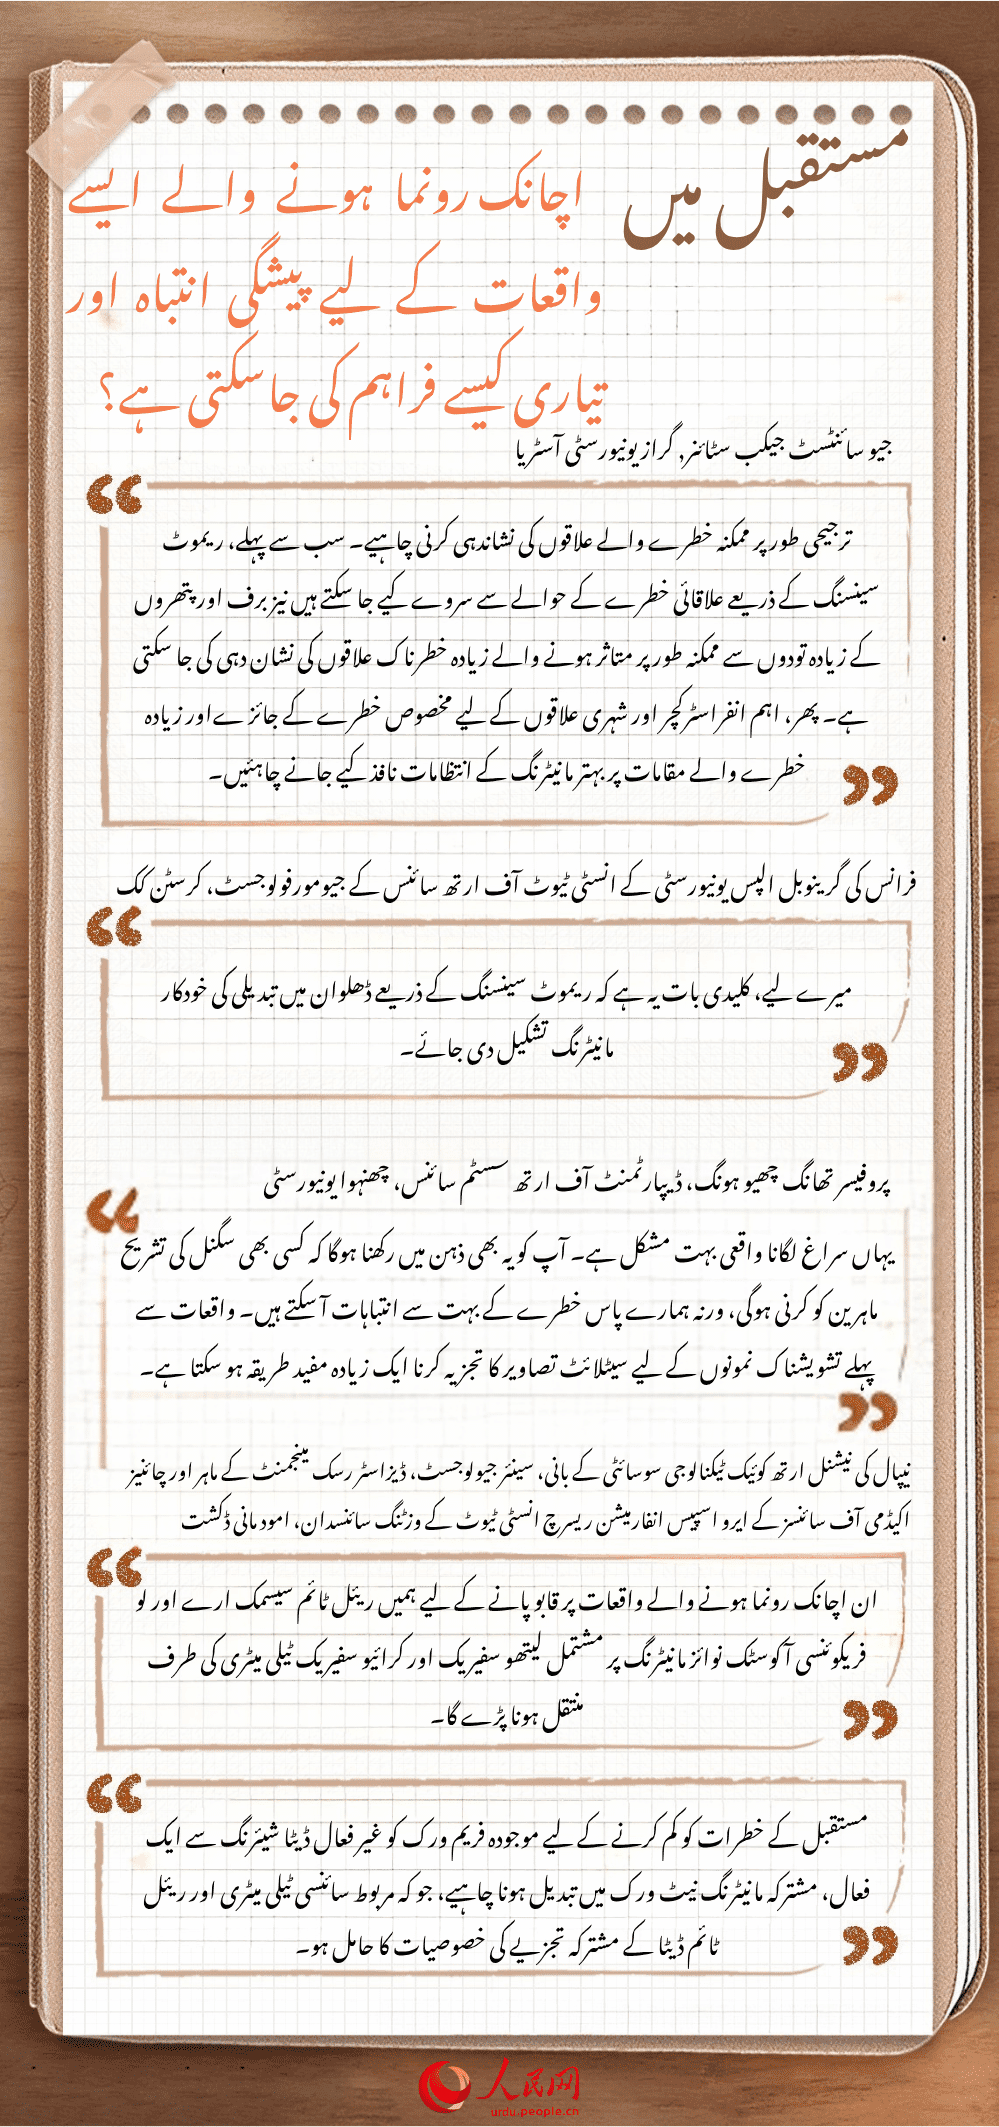 مستقبل میں
اچانک رونما ہونے والے ایسے
واقعات کے لیے پیشگی انتباہ اور
تیاری کیسے فراہم کی جاسکتی ہے؟
جیو سائنٹسٹ جیکب سٹائنر, گراز یونیورسٹی آسٹریا
ترجیحی طور پر ممکنہ خطرے والے علاقوں کی نشاندہی کرنی چاہیے۔ سب سے پہلے، ریموٹ
سینسنگ کے ذریعے علاقائی خطرے کے حوالے سے سروے کیے جا سکتے ہیں نیز برف اور پتھروں
کے زیادہ تودوں سے ممکنہ طور پر متاثر ہونے والے زیادہ خطرناک علاقوں کی نشان دہی کی جا سکتی
ہے۔ پھر، اہم انفراسٹرکچر اور شہری علاقوں کے لیے مخصوص خطرے کے جائزے اور زیادہ
خطرے والے مقامات پر بہتر مانیٹرنگ کے انتظامات نافذ کیے جانے چاہئیں۔
فرانس کی گرینوبل الپس یونیورسٹی کے انسٹی ٹیوٹ آف ارتھ سائنس کے جیومورفولوجسٹ، کرسٹن کک
میرے لیے، کلیدی بات یہ ہے کہ ریموٹ سینسنگ کے ذریعے ڈھلوان میں تبدیلی کی خودکار
مانیٹرنگ تشکیل دی جائے۔
پروفیسر تھانگ چھیو ہونگ، ڈیپارٹمنٹ آف ارتھ سسٹم سائنس، چھنہوا یونیورسٹی
یہاں سراغ لگانا واقعی بہت مشکل ہے۔ آپ کو یہ بھی ذہن میں رکھنا ہوگا کہ کسی بھی سگنل کی تشریح
ماہرین کو کرنی ہوگی، ورنہ ہمارے پاس خطرے کے بہت سے انتباہات آسکتے ہیں۔ واقعات سے
پہلے تشویشناک نمونوں کے لیے سیٹلائٹ تصاویر کا تجزیہ کرنا ایک زیادہ مفید طریقہ ہو سکتا ہے۔
نیپال کی نیشنل ارتھ کوئیک ٹیکنالوجی سوسائٹی کے بانی، سینئر جیولوجسٹ، ڈیزاسٹر رسک مینجمنٹ کے ماہر اور چائنیز
اکیڈمی آف سائنسز کے ایرو اسپیس انفارمیشن ریسرچ انسٹی ٹیوٹ کے وزٹنگ سائنسدان، امود مانی ڈکشت
ان اچانک رونما ہونے والے واقعات پر قابو پانے کے لیے ہمیں ریئل ٹائم سیسمک ارے اور لو
فریکوئنسی آکوسٹک نوائز مانیٹرنگ پر مشتمل لیتھو سفیرک اور کرائیو سفیرک ٹیلی میٹری کی طرف
منتقل ہونا پڑے گا۔
مستقبل کے خطرات کو کم کرنے کے لیے موجودہ فریم ورک کو غیر فعال ڈیٹا شیئرنگ سے ایک
فعال، مشترکہ مانیٹرنگ نیٹ ورک میں تبدیل ہونا چاہیے، جو کہ مربوط سائنسی ٹیلی میٹری اور ریئل
ٹائم ڈیٹا کے مشترکہ تجزیے کی خصوصیات کا حامل ہو۔
人民网
urdu.people.cn